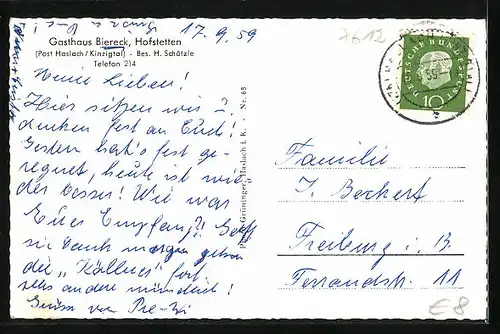 17.9.59
7612
Gasthaus Biereck, Hofstetten
(Post Haslach/Kinzigtal) - Bes. H. Schätzle
Telefon 214
Meine Lieben!
Hier sitzen wir u.
denken fest an Euch!
Gestern hat's fest ge-
regnet, heute ist wie-
der besser! Wie war
Euer Empfang?!
sie Dank morgen
die „ " fort.
alles andere mündlich!
Grüsse von
Grüninger, Haslach i. K. - Nr. 68
DEUTSCHE BUNDESPOST
10
Familie
J. Beckert
Freiburg i. B.
11
€8